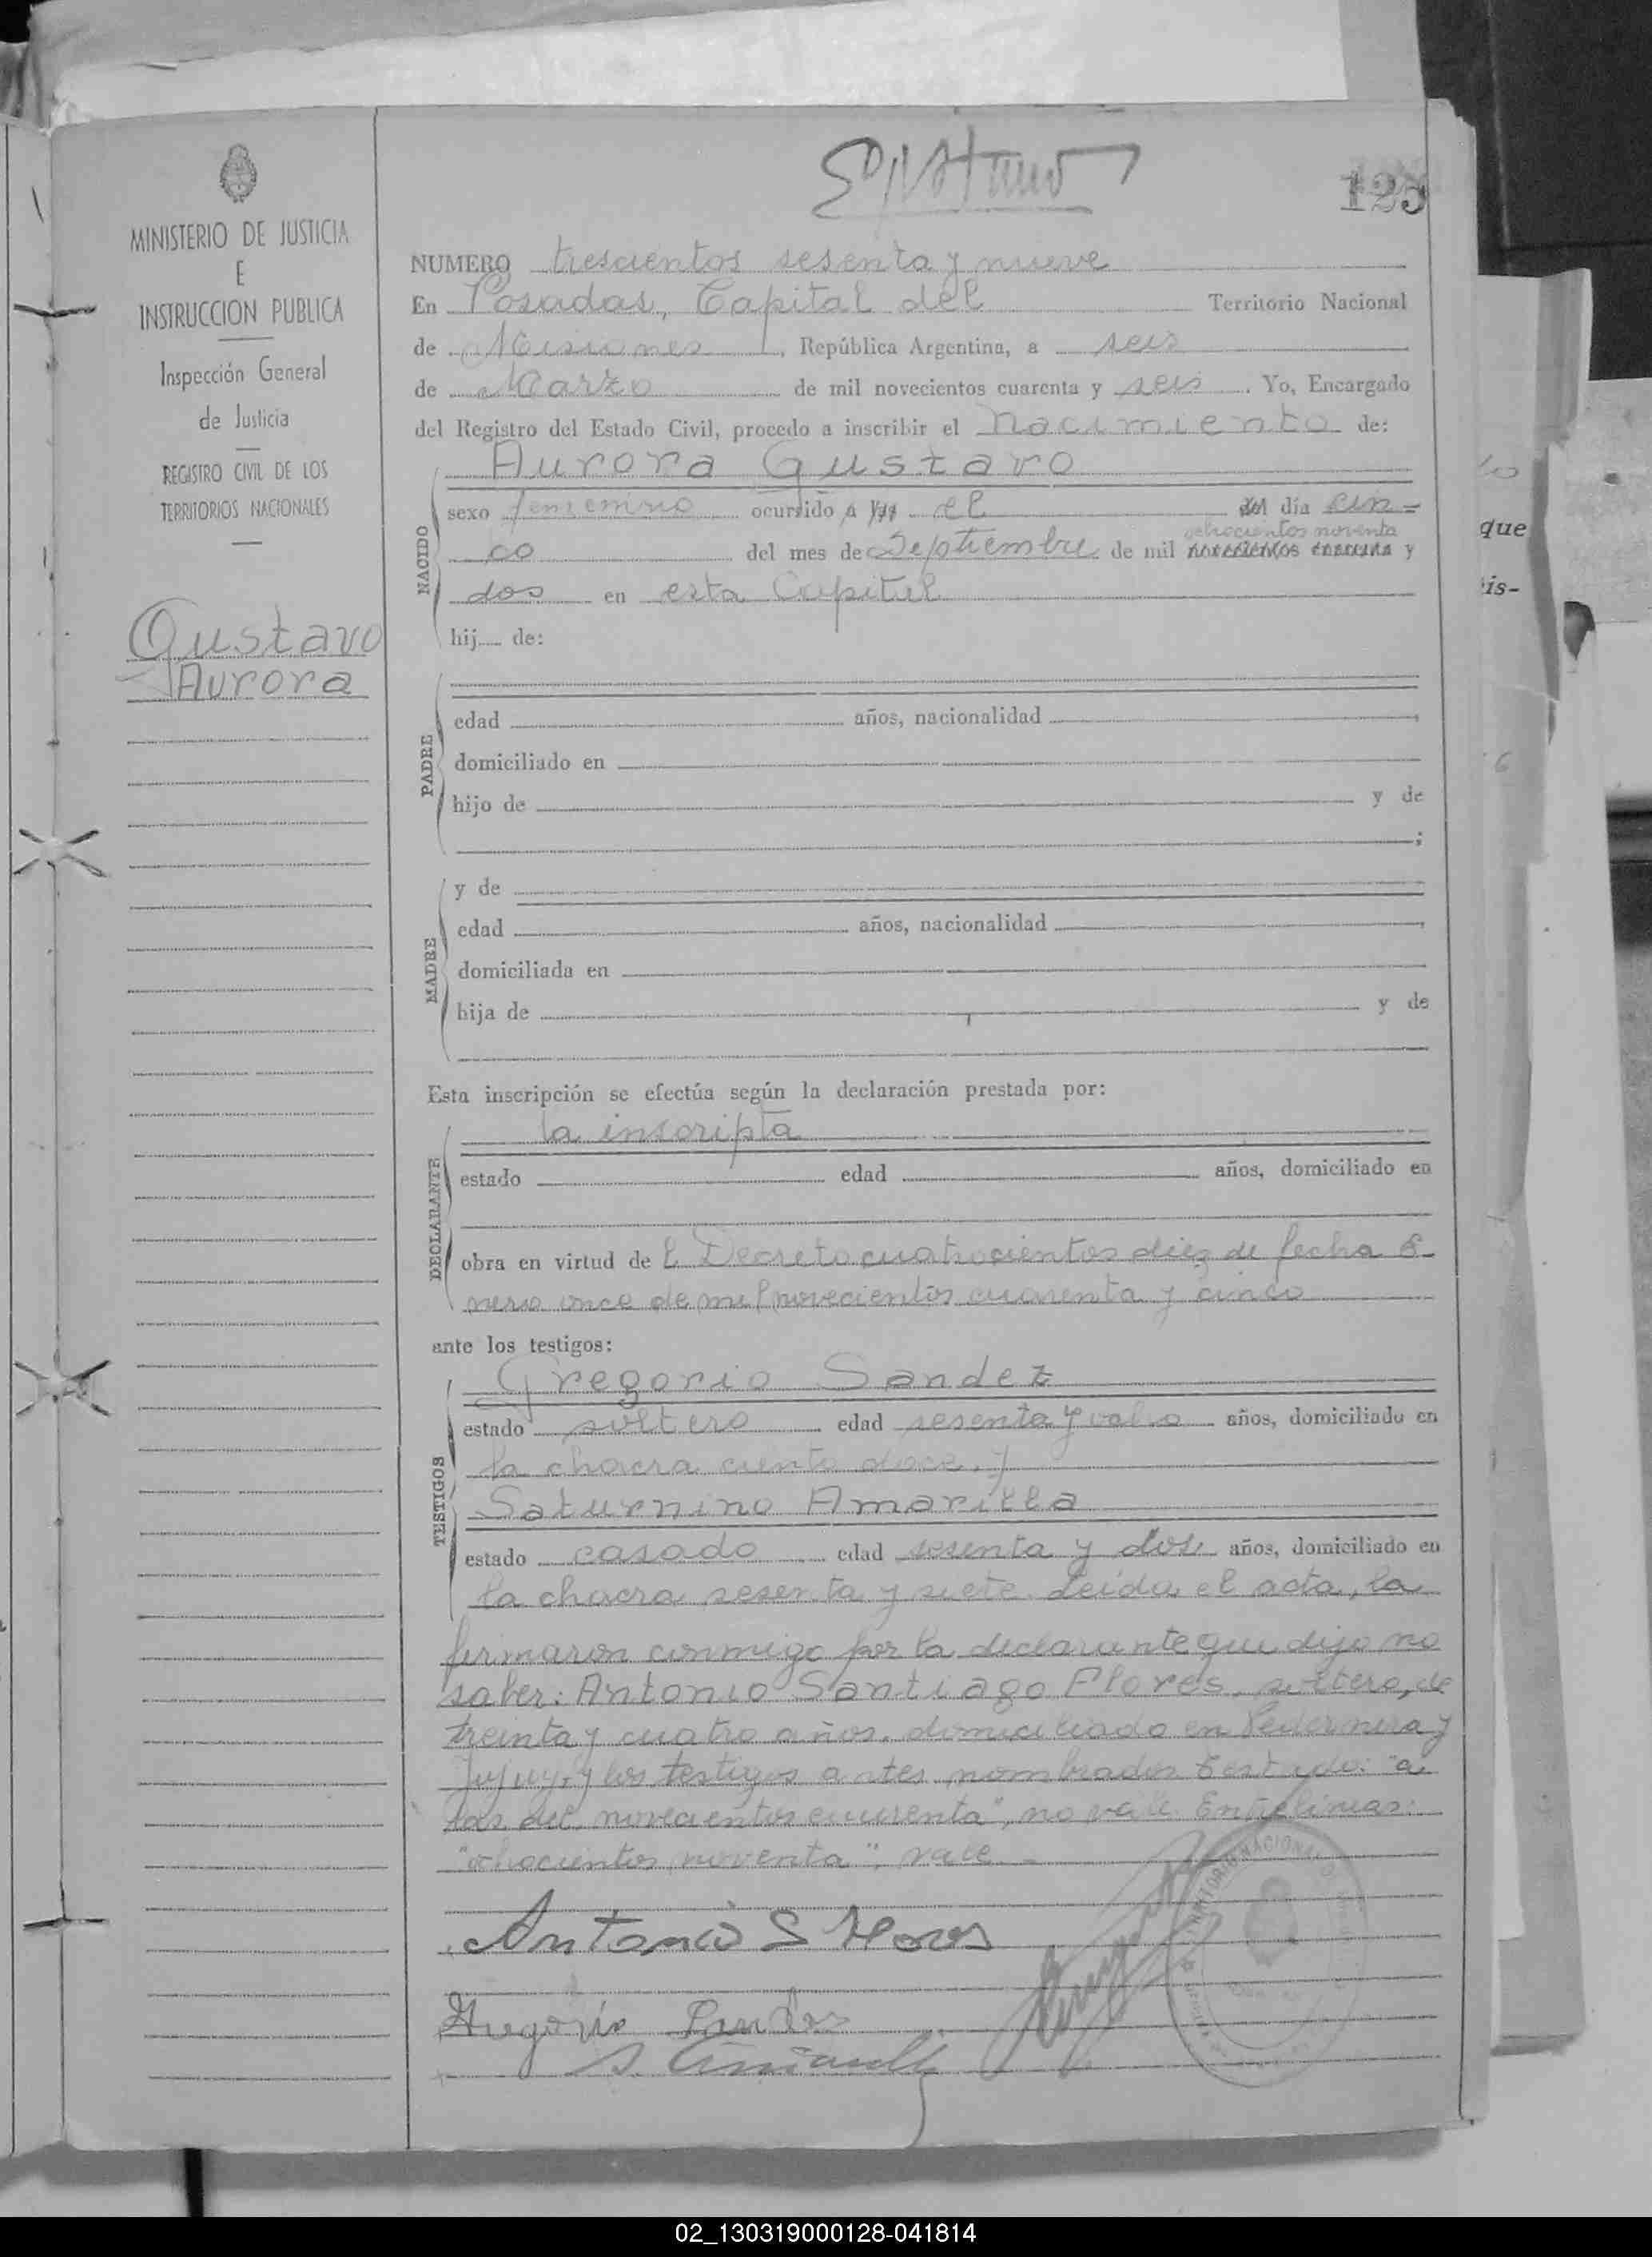 Gustavo
125
MINISTERIO DE JUSTICIA
E
INSTRUCCION PUBLICA
Inspección General
de Justicia
REGISTRO CIVIL DE LOS
TERRITORIOS NACIONALES
Gustavo
Aurora
NUMERO trescientos sesenta y nueve
En Posadas, Capital del Territorio Nacional
de Misiones, República Argentina, a seis
de Marzo de mil novecientos cuarenta y seis. Yo, Encargado
del Registro del Estado Civil, procedo a inscribir el nacimiento de:
Aurora Gustavo
NACIDO
sexo femenino ocurrido a las el del día cin-
ochocientos noventa
co del mes de Septiembre de mil novecientos cuarenta y
dos en esta Capital
hij de:
PADRE
edad años, nacionalidad
domiciliado en
hijo de y de
;
MADRE
y de
edad años, nacionalidad
domiciliada en
hija de y de
Esta inscripción se efectúa según la declaración prestada por:
DECLARANTE
la inscripta
estado edad años, domiciliado en
obra en virtud de l Decreto cuatrocientos diez de fecha E-
nero once de mil novecientos cuarenta y cinco
ante los testigos:
TESTIGOS
Gregorio Sandez
estado soltero edad sesenta y años, domiciliado en
la chacra ciento doce, y
Saturnino Amarilla
estado casado edad sesenta y dos años, domiciliado en
la chacra sesenta y siete. Leída el acta, la
firmaron conmigo por la declarante que dijo no
saber: Antonio Santiago Flores, soltero, de
treinta y cuatro años, domiciliado en Pedernera y
Jujuy, y los testigos antes nombrados. Testado: "a
las del, novecientos cuarenta", no vale. Entrelineas:
"ochocientos noventa", vale.
Antonio S Flores
Gregorio Sandes
S. Amarilla
TERRITORIO NACIONAL
que
is-
02_130319000128-041814